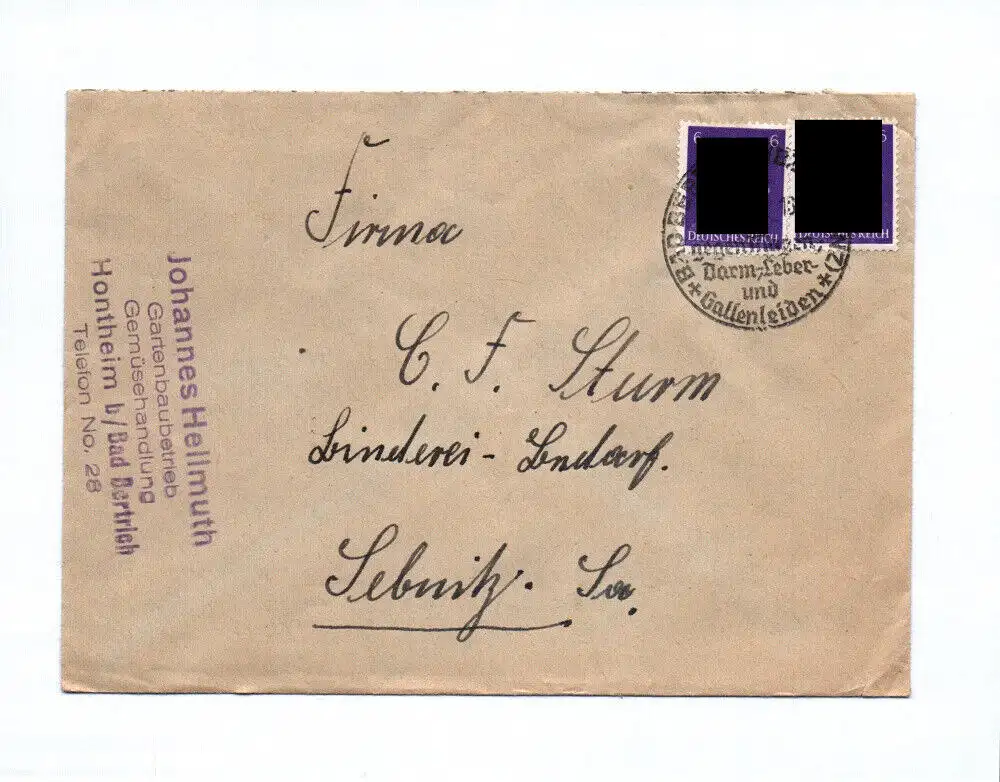 Johannes Hellmuth
Gartenbaubetrieb
Gemüsehandlung
Hontheim b/Bad Bertrich
Telefon No. 28
6 6
DEUTSCHES REICH
DEUTSCHES REICH
BAD BER
Darm-, Leber-
und
Gallenleiden
Firma
C. F. Sturm
Binderei-Bedarf.
Sebnitz. Sa.